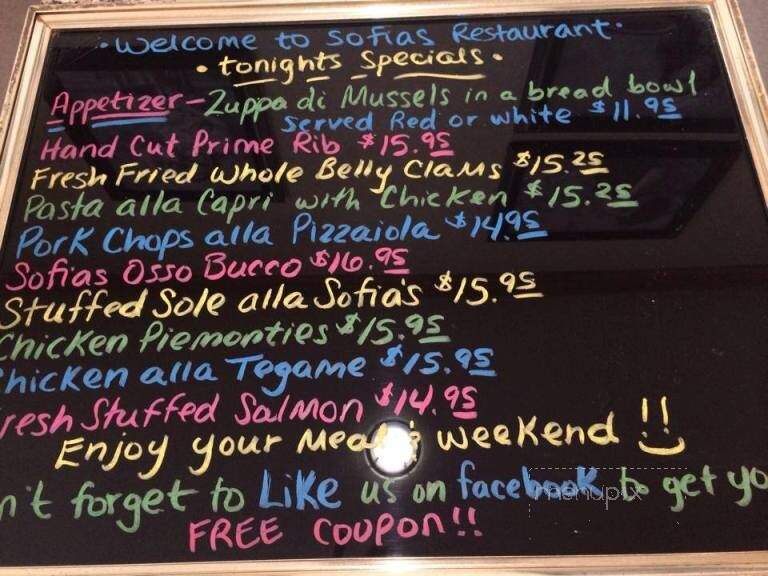 • Welcome to Sofias Restaurant •
• tonights Specials •
Appetizer - Zuppa di Mussels in a bread bowl
Served Red or white $11.95
Hand Cut Prime Rib $15.95
Fresh Fried Whole Belly Clams $15.25
Pasta alla Capri with Chicken $15.25
Pork Chops alla Pizzaiola $14.95
Sofias Osso Bucco $16.95
Stuffed Sole alla Sofia's $15.95
Chicken Piemonties $15.95
hicken alla Tegame $15.95
resh Stuffed Salmon $14.95
Enjoy your Meal & weekend !!
n't forget to Like us on facebook to get yo
FREE Coupon!!
menupix